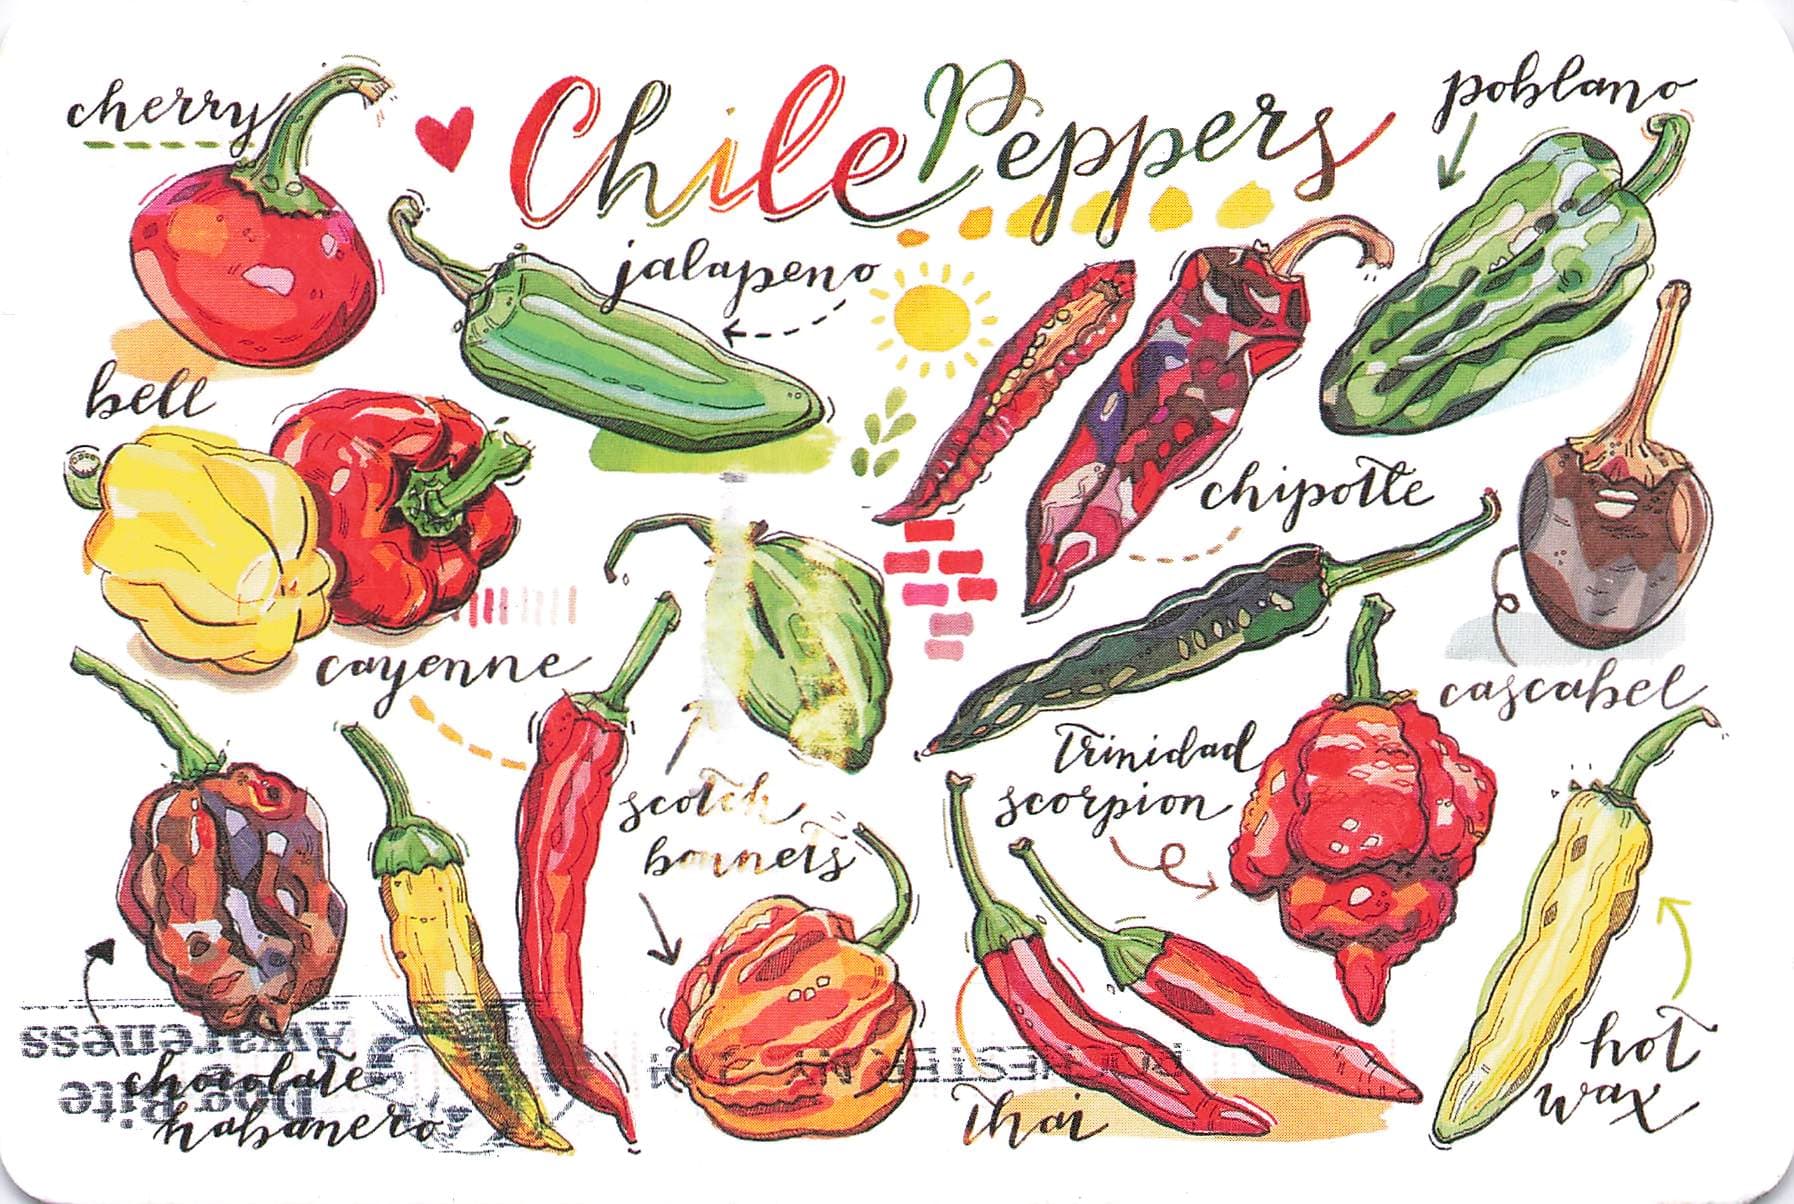 Chile Peppers
cherry
poblano
jalapeno
bell
chipotle
cayenne
cascabel
scotch
bonnets
Trinidad
scorpion
chocolate
habanero
Thai
hot
wax
Dog Bite
Awareness